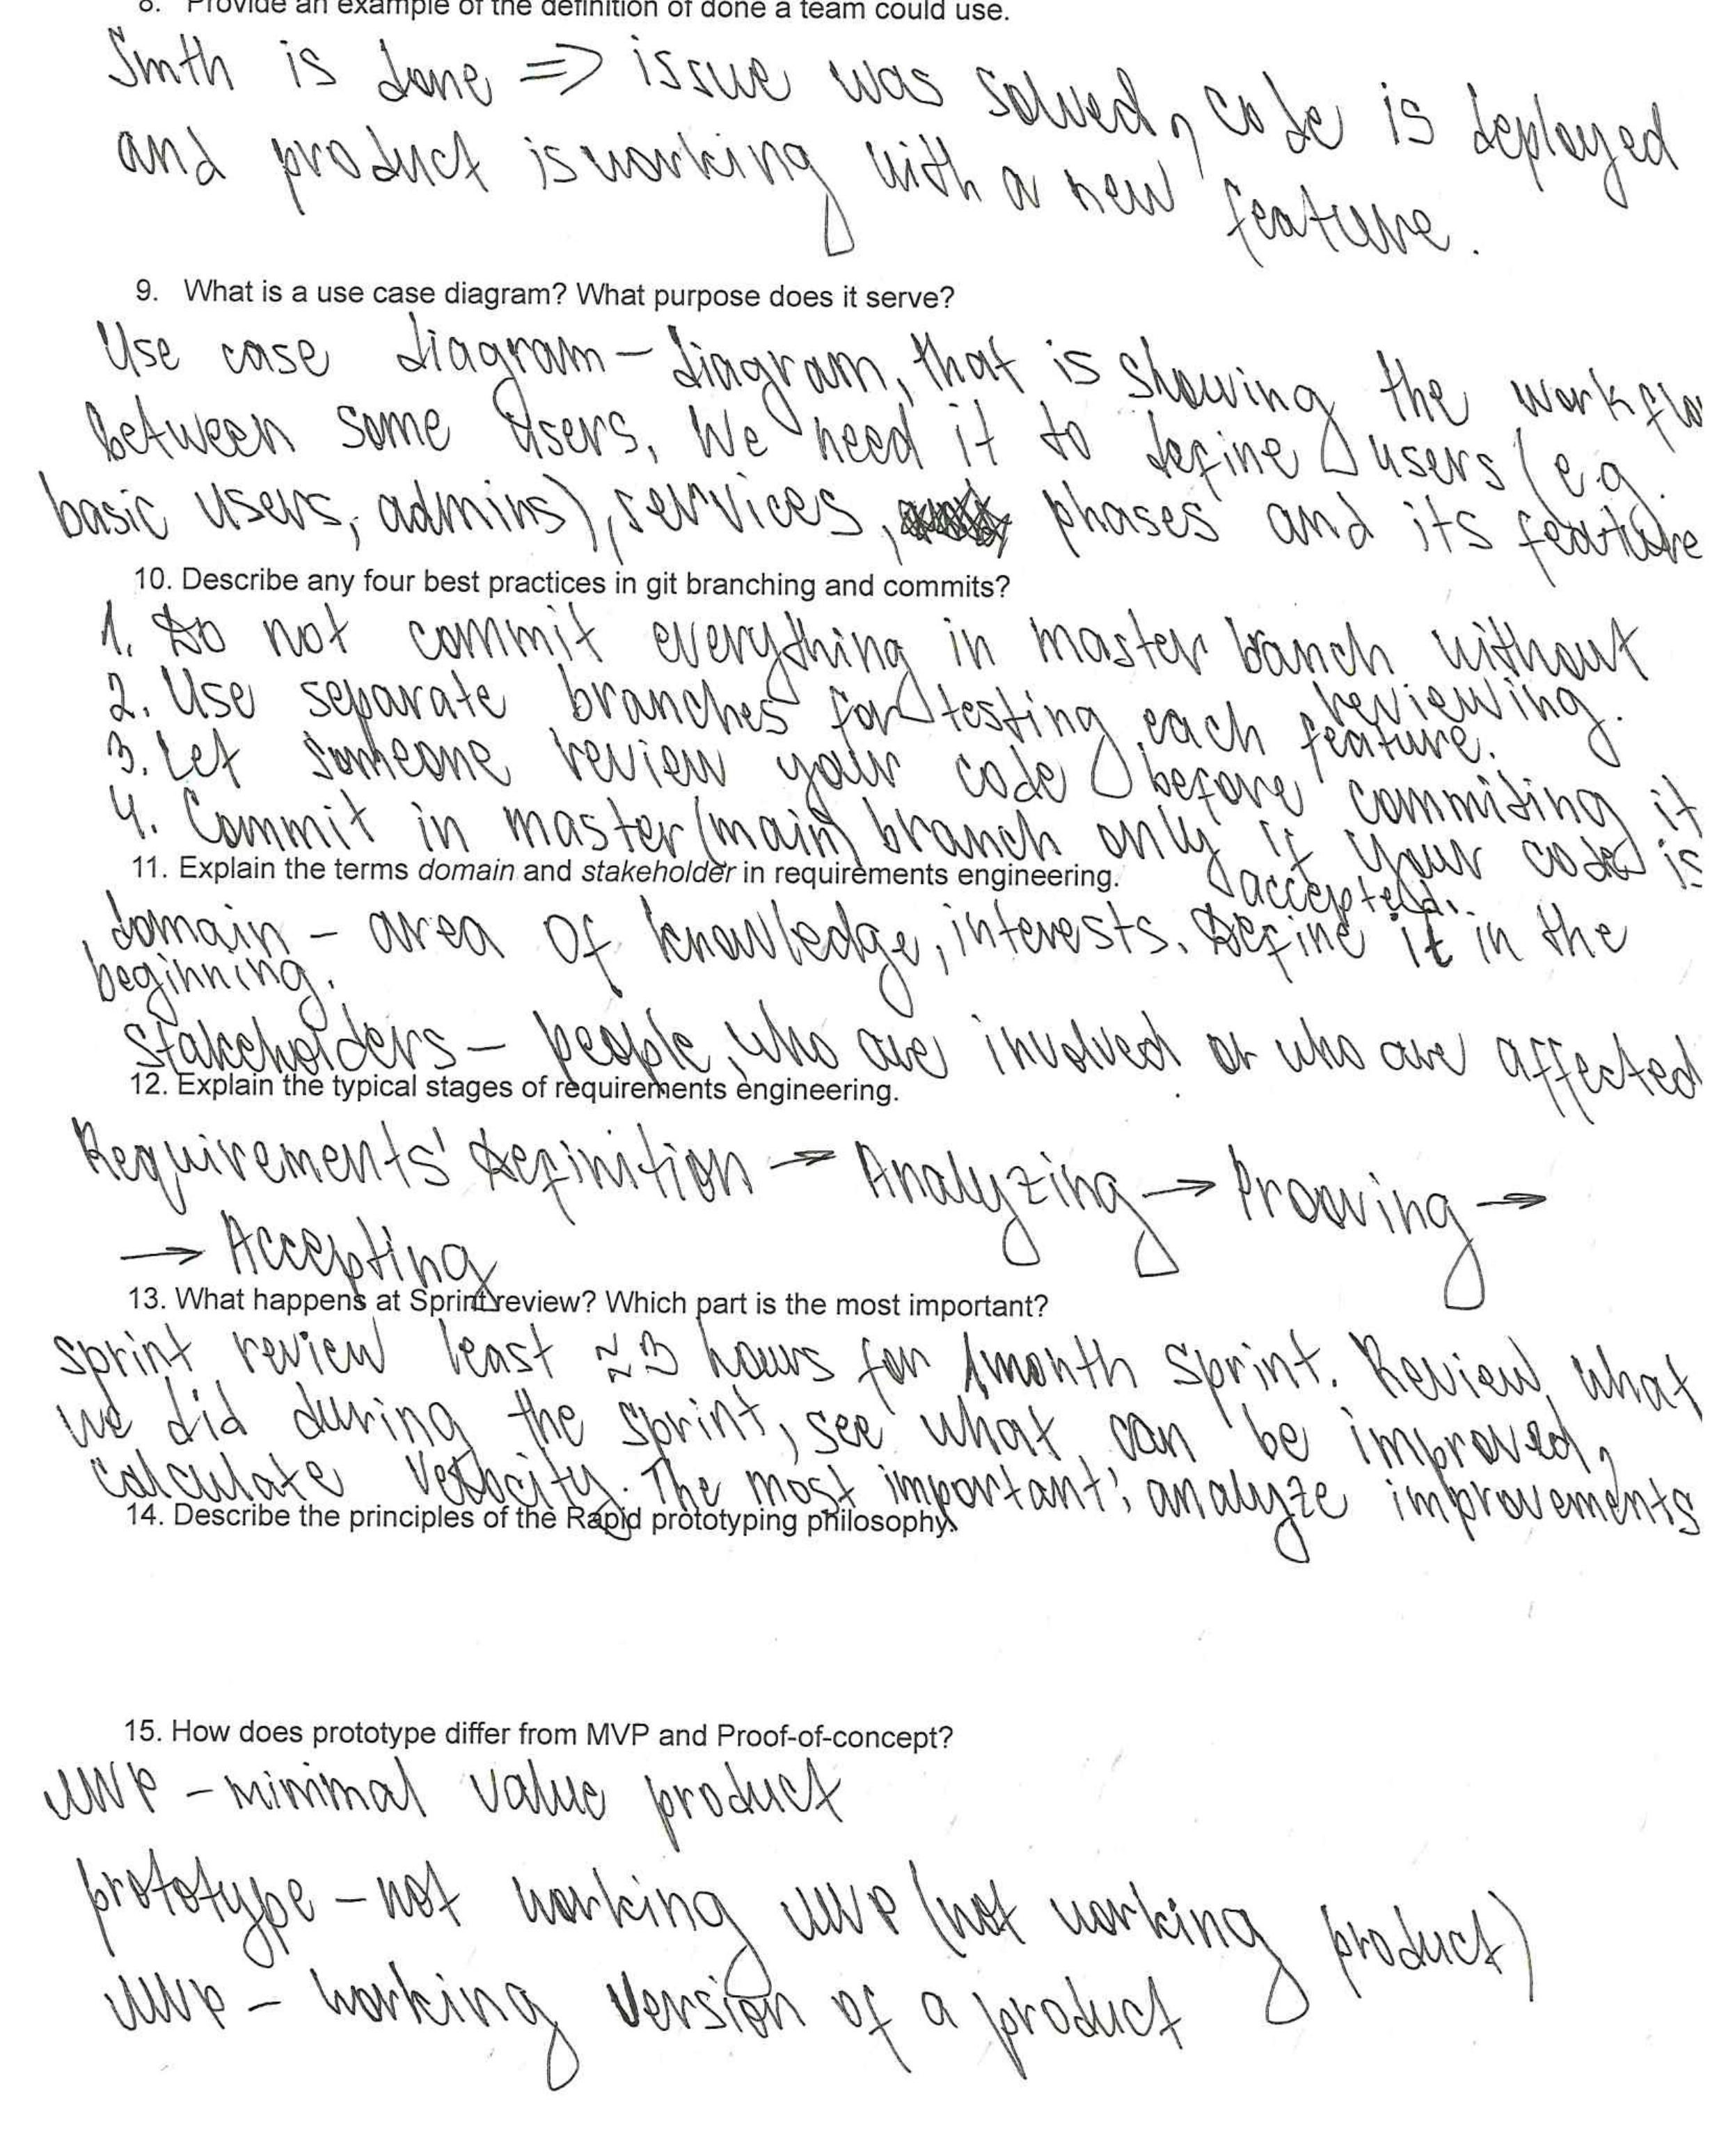 8. Provide an example of the definition of done a team could use.
Smth is done => issue was solved, code is deployed
and product is working with a new feature.
9. What is a use case diagram? What purpose does it serve?
Use case diagram – diagram, that is showing the workflo
between some users. We need it to define users (e.g.
basic users, admins), services, phases and its feature
10. Describe any four best practices in git branching and commits?
1. Do not commit everything in master branch without
reviewing.
2. Use separate branches for testing each feature.
3. Let someone review your code before commiting it
4. Commit in master (main) branch only if your code is
accepted.
11. Explain the terms domain and stakeholder in requirements engineering.
domain – area of knowledge, interests. Define it in the
beginning.
stakeholders – people, who are involved or who are affected
12. Explain the typical stages of requirements engineering.
Requirements' Definition → Analyzing → Prooving →
→ Accepting
13. What happens at Sprint review? Which part is the most important?
Sprint review least ≈ 3 hours for 1 month sprint. Review, what
we did during the sprint, see what can be improved,
calculate velocity. The most important: analyze improvements
14. Describe the principles of the Rapid prototyping philosophy.
15. How does prototype differ from MVP and Proof-of-concept?
MVP – minimal value product
prototype – not working MVP (not working product)
MVP – working version of a product